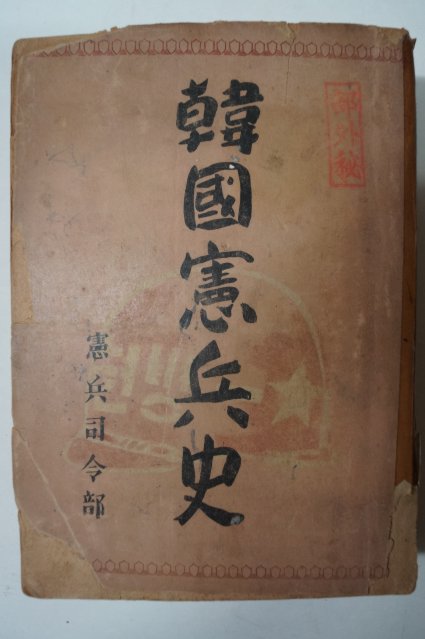 部外秘
韓國憲兵史
憲兵司令部